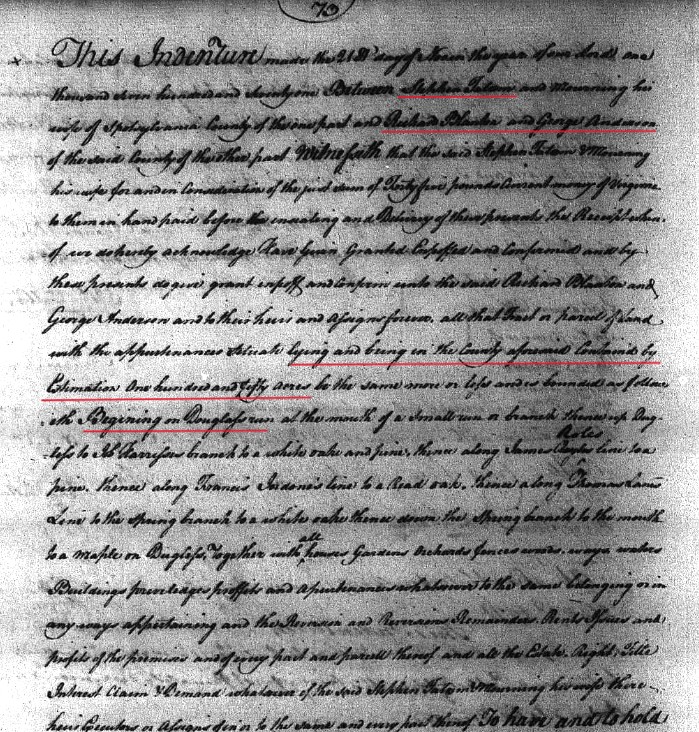 73
This Indenture made the 21st day of in the year of our Lord one
thousand seven hundred and seventy one Between Stephen Tatom and Mourning his
wife of Spotsylvania County of the one part and Richard Blanton and George Anderson
of the said County of the other part Witnesseth that the said Stephen Tatom & Mourning
his wife for and in Consideration of the just sum of Forty five pounds Current money of Virginia
to them in hand paid before the ensealing and Delivery of these presents the Receipt where
of we do hereby acknowledge Have Given Granted Enfeoffed and Confirmed and by
these presents do give grant enfeoff and Confirm unto the said Richard Blanton and
George Anderson and to their heirs and Assigns forever. all that Tract or parcel of Land
with the appurtenances Scituate lying and being in the County aforesaid Containd by
Estimation One hundred and fifty acres be the same more or less and is bounded as follow
eth Begining on Douglass run at the mouth of a small run or branch thence up Dug-
less to branch to a white oake and pine, thence along James line to a
Roles
pine. thence along Francis line to a Read oak. thence along Thomas Lanes
Line to the Spring branch to a white oake thence down the Spring branch to the mouth
to a maple on Duglass, Together with all houses Gardens Orchards fences woods. ways waters
Buildings priviledges proffits and apurtenances whatsoever to the same belonging or in
any ways appertaining and the Reversion and Reversions Remainders. Rents Issues and
profits of the premises and of every part and parcell thereof and all the Estate. Right. Title
Interest Claim & Demand whatsoever of the said Stephen Tatom & Mourning his wife there
heirs Executors or Assigns of in or to the same and every part thereof To have and to hold